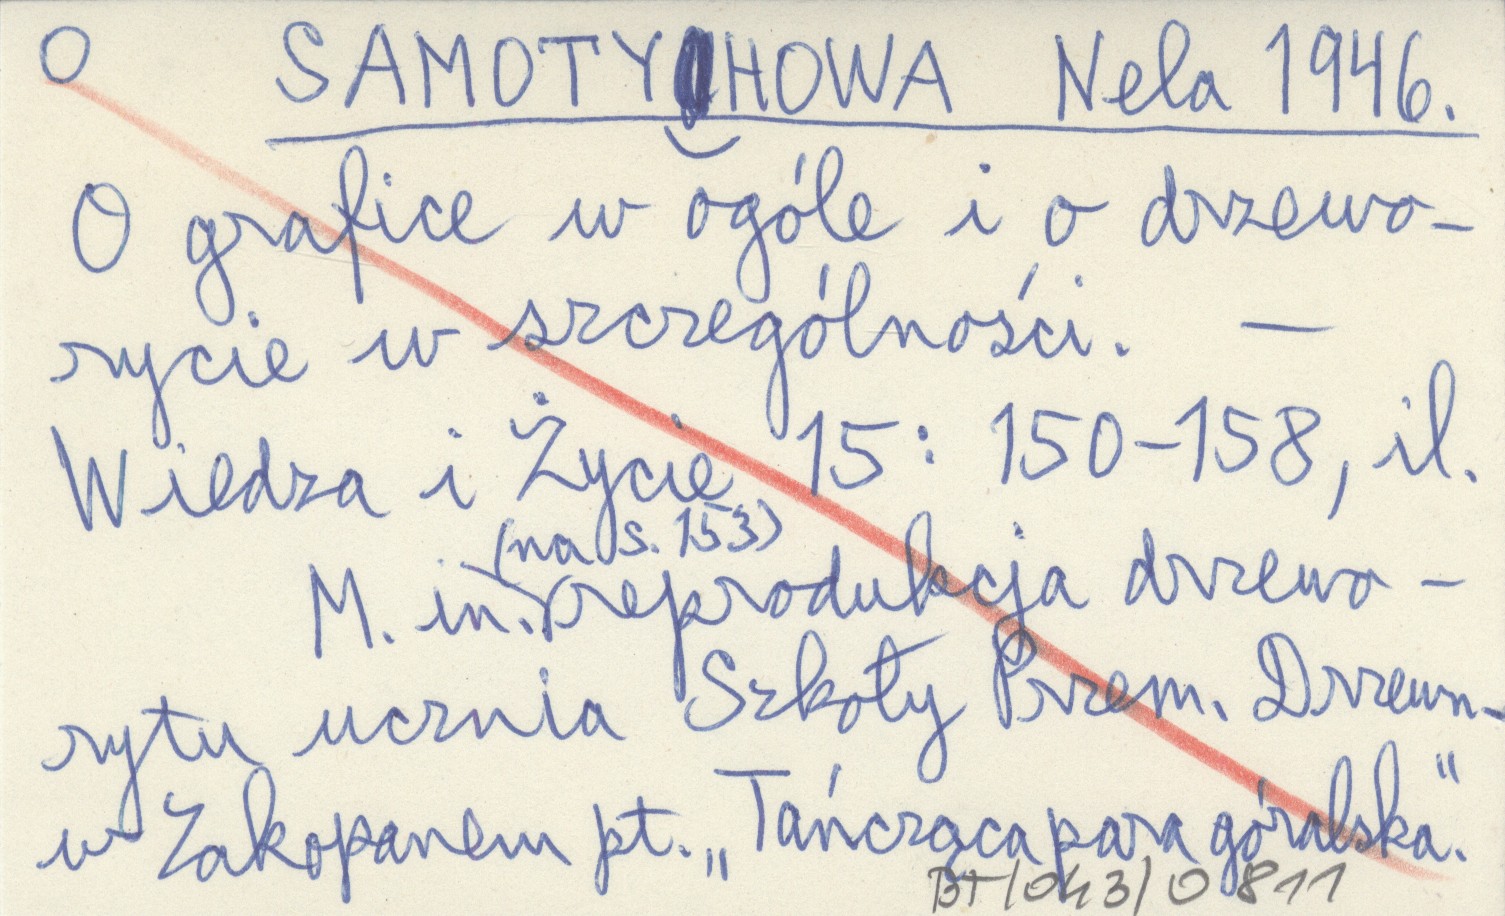 O SAMOTYHOWA Nela 1946.
O grafice w ogóle i o drzewo-
rycie w szczególności. —
Wiedza i Życie 15: 150-158, il.
(na s. 153)
M. in. reprodukcja drzewo-
rytu ucznia Szkoły Przem. Drzewn.
w Zakopanem pt. „Tańcząca para góralska."
BT/043/0811